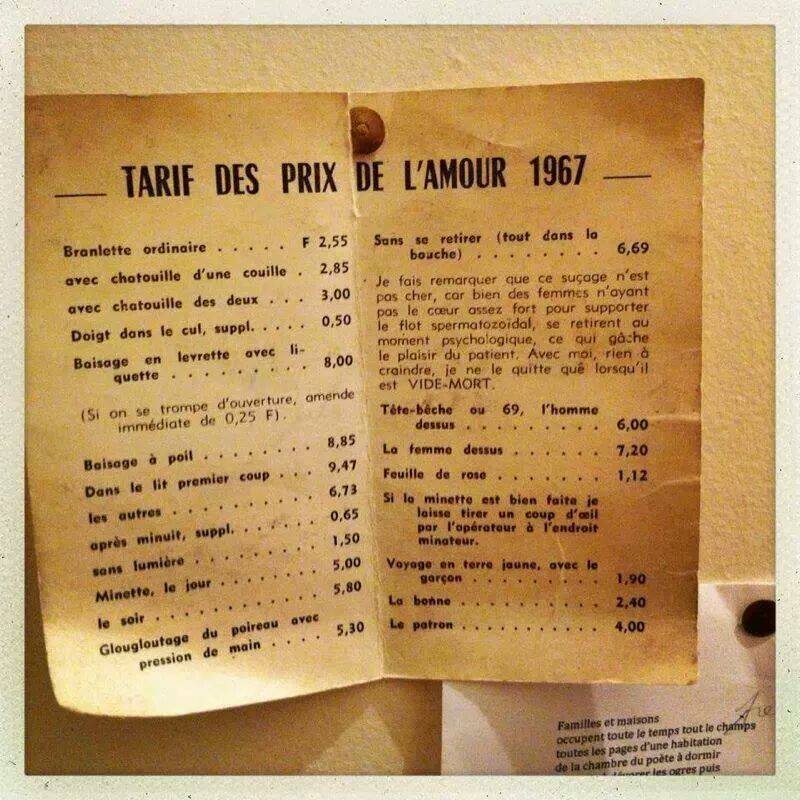 TARIF DES PRIX DE L'AMOUR 1967
Branlette ordinaire . . . . . F 2,55
avec chatouille d'une couille . 2,85
avec chatouille des deux . . . 3,00
Doigt dans le cul, suppl. . . . . 0,50
Baisage en levrette avec li-
quette . . . . . . . . . 8,00
(Si on se trompe d'ouverture, amende
immédiate de 0,25 F).
Baisage à poil . . . . . . . . 8,85
Dans le lit premier coup . . . 9,47
les autres . . . . . . . . . . 6,73
après minuit, suppl. . . . . . . 0,65
sans lumière . . . . . . . . . 1,50
Minette, le jour . . . . . . . . 5,00
le soir . . . . . . . . . . . 5,80
Glougloutage du poireau avec
pression de main . . . . 5,30
Sans se retirer (tout dans la
bouche) . . . . . . . . 6,69
Je fais remarquer que ce suçage n'est
pas cher, car bien des femmes n'ayant
pas le cœur assez fort pour supporter
le flot spermatozoïdal, se retirent au
moment psychologique, ce qui gâche
le plaisir du patient. Avec moi, rien à
craindre, je ne le quitte quê lorsqu'il
est VIDE-MORT.
Tête-bêche ou 69, l'homme
dessus . . . . . . . . . 6,00
La femme dessus . . . . . . . 7,20
Feuille de rose . . . . . . . . 1,12
Si la minette est bien faite je
laisse tirer un coup d'œil
par l'opérateur à l'endroit
minateur.
Voyage en terre jaune, avec le
garçon . . . . . . . . . 1,90
La bonne . . . . . . . . . . . 2,40
Le patron . . . . . . . . . . . 4,00
Familles et maisons
occupent toute le temps tout le champs
toutes les pages d'une habitation
de la chambre du poète à dormir
dévorer les ogres puis